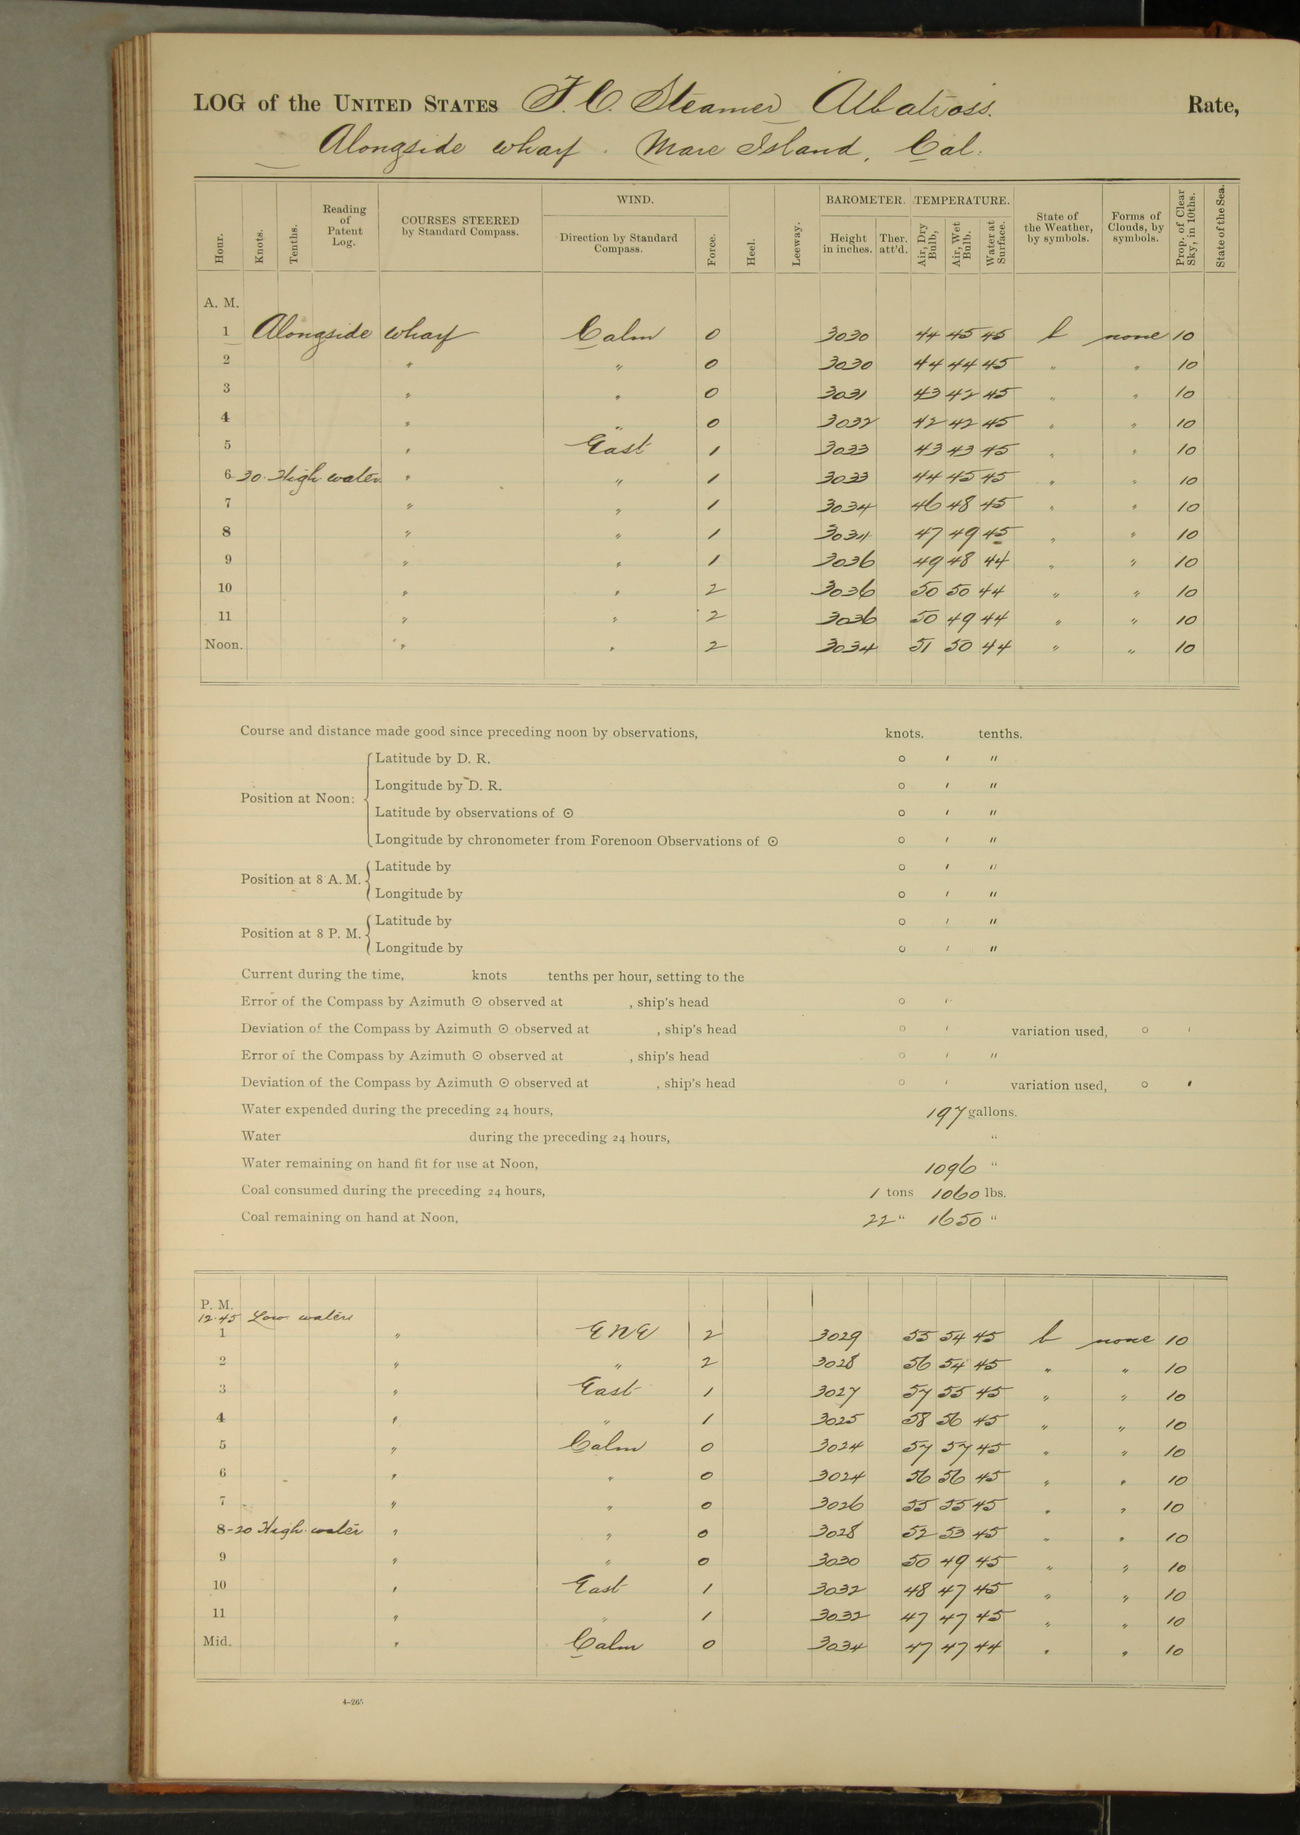 LOG of the UNITED STATES F. C. Steamer Albatross. Rate,
Alongside wharf. Mare Island, Cal.
Hour. Knots. Tenths. Reading of Patent Log. COURSES STEERED by Standard Compass. WIND. Direction by Standard Compass. Force. Heel. Leeway. BAROMETER. Height in inches. Ther. att'd. TEMPERATURE. Air, Dry Bulb. Air, Wet Bulb. Water at Surface. State of the Weather, by symbols. Forms of Clouds, by symbols. Prop. of Clear Sky, in 10ths. State of the Sea.
A. M.
1 Alongside wharf Calm 0 3030 44 45 45 b none 10
2 " " 0 3030 44 44 45 " " 10
3 " " 0 3031 43 42 45 " " 10
4 " " 0 3032 42 42 45 " " 10
5 " East 1 3033 43 43 45 " " 10
6 30 High water " " 1 3033 44 45 45 " " 10
7 " " 1 3034 46 48 45 " " 10
8 " " 1 3034 47 49 45 " " 10
9 " " 1 3036 49 48 44 " " 10
10 " " 2 3036 50 50 44 " " 10
11 " " 2 3036 50 49 44 " " 10
Noon. " " 2 3034 51 50 44 " " 10
Course and distance made good since preceding noon by observations, knots. tenths.
Position at Noon:
Latitude by D. R. ° ′ ″
Longitude by D. R. ° ′ ″
Latitude by observations of ⊙ ° ′ ″
Longitude by chronometer from Forenoon Observations of ⊙ ° ′ ″
Position at 8 A. M.
Latitude by ° ′ ″
Longitude by ° ′ ″
Position at 8 P. M.
Latitude by ° ′ ″
Longitude by ° ′ ″
Current during the time, knots tenths per hour, setting to the
Error of the Compass by Azimuth ⊙ observed at , ship's head ° ′
Deviation of the Compass by Azimuth ⊙ observed at , ship's head ° ′ variation used, ° ′
Error of the Compass by Azimuth ⊙ observed at , ship's head ° ′ ″
Deviation of the Compass by Azimuth ⊙ observed at , ship's head ° ′ variation used, ° ′
Water expended during the preceding 24 hours, 197 gallons.
Water during the preceding 24 hours, "
Water remaining on hand fit for use at Noon, 1096 "
Coal consumed during the preceding 24 hours, 1 tons 1060 lbs.
Coal remaining on hand at Noon, 22 " 1650 "
P. M.
12.45 Low water
1 " ENE 2 3029 55 54 45 b none 10
2 " " 2 3028 56 54 45 " " 10
3 " East 1 3027 57 55 45 " " 10
4 " " 1 3025 58 56 45 " " 10
5 " Calm 0 3024 57 57 45 " " 10
6 " " 0 3024 56 56 45 " " 10
7 " " 0 3026 55 55 45 " " 10
8-20 High water " " 0 3028 52 53 45 " " 10
9 " " 0 3030 50 49 45 " " 10
10 " East 1 3032 48 47 45 " " 10
11 " " 1 3032 47 47 45 " " 10
Mid. " Calm 0 3034 47 47 44 " " 10
4-265